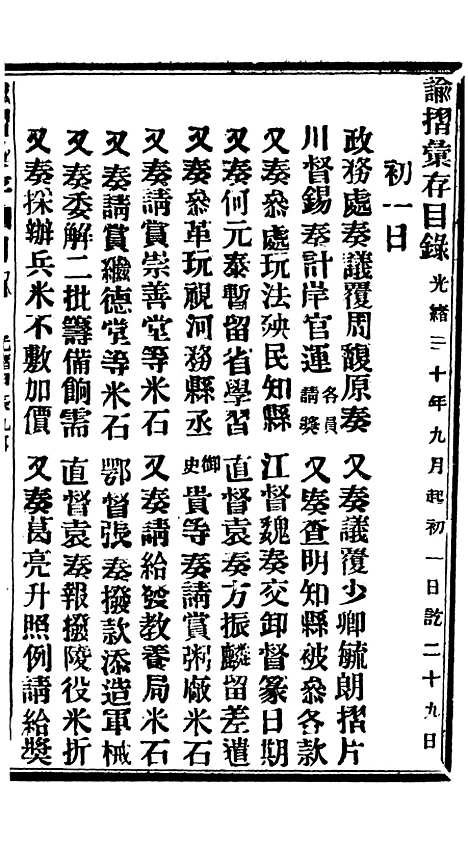 諭摺彙存目錄 光緒三十年九月起初一日訖二十九日
初一日
政務處奏議覆周馥原奏 又奏議覆少卿毓朗摺片
川督錫奏計岸官運各員請獎 又奏查明知縣被叅各款
又奏叅處玩法殃民知縣 江督魏奏交卸督篆日期
又奏何元泰暫留省學習 直督袁奏方振麟留差遣
又奏叅革玩視河務縣丞 御史貴等奏請賞粥廠米石
又奏請賞崇善堂等米石 又奏請給發教養局米石
又奏請賞繼德堂等米石 鄂督張奏撥款添造軍械
又奏委解二批籌備餉需 直督袁奏報撥陵役米折
又奏採辦兵米不敷加價 又奏葛亮升照例請給獎